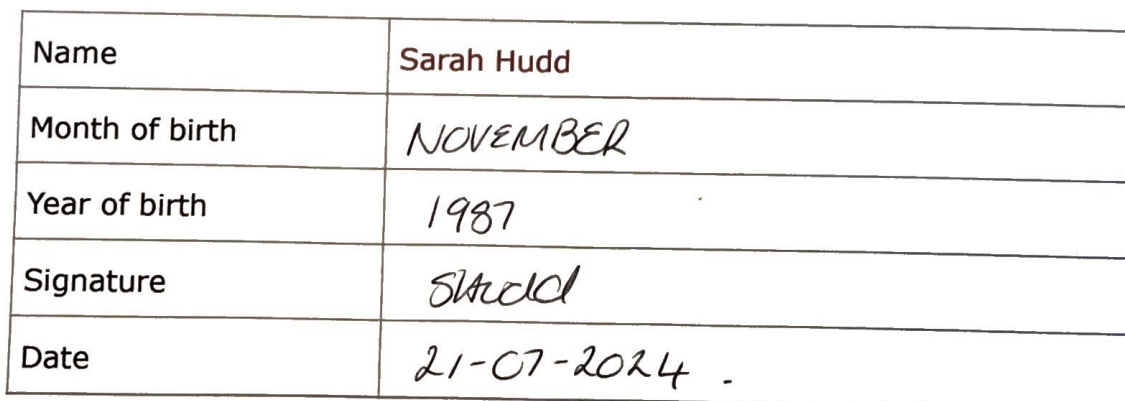 Name Sarah Hudd
Month of birth NOVEMBER
Year of birth 1987
Signature SHudd
Date 21-07-2024 .